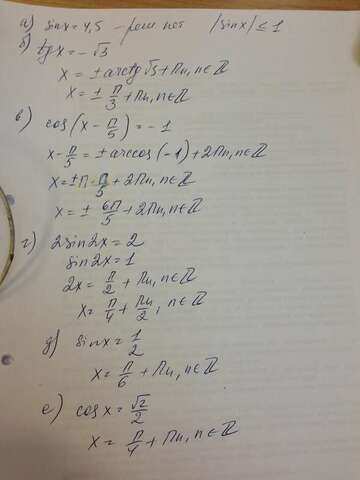 а) sinx = 4,5 – реш нет |sinx| ≤ 1
б) tgx = -√3
x = ± arctg√3 + Пn, n∈Z
x = ± П/3 + Пn, n∈Z
в) cos(x - П/5) = -1
x - П/5 = ± arccos(-1) + 2Пn, n∈Z
x = ± П - П/5 + 2Пn, n∈Z
x = ± 6П/5 + 2Пn, n∈Z
г) 2sin2x = 2
sin2x = 1
2x = П/2 + Пn, n∈Z
x = П/4 + Пn/2, n∈Z
д) sinx = 1/2
x = П/6 + Пn, n∈Z
е) cosx = √2/2
x = П/4 + Пn, n∈Z